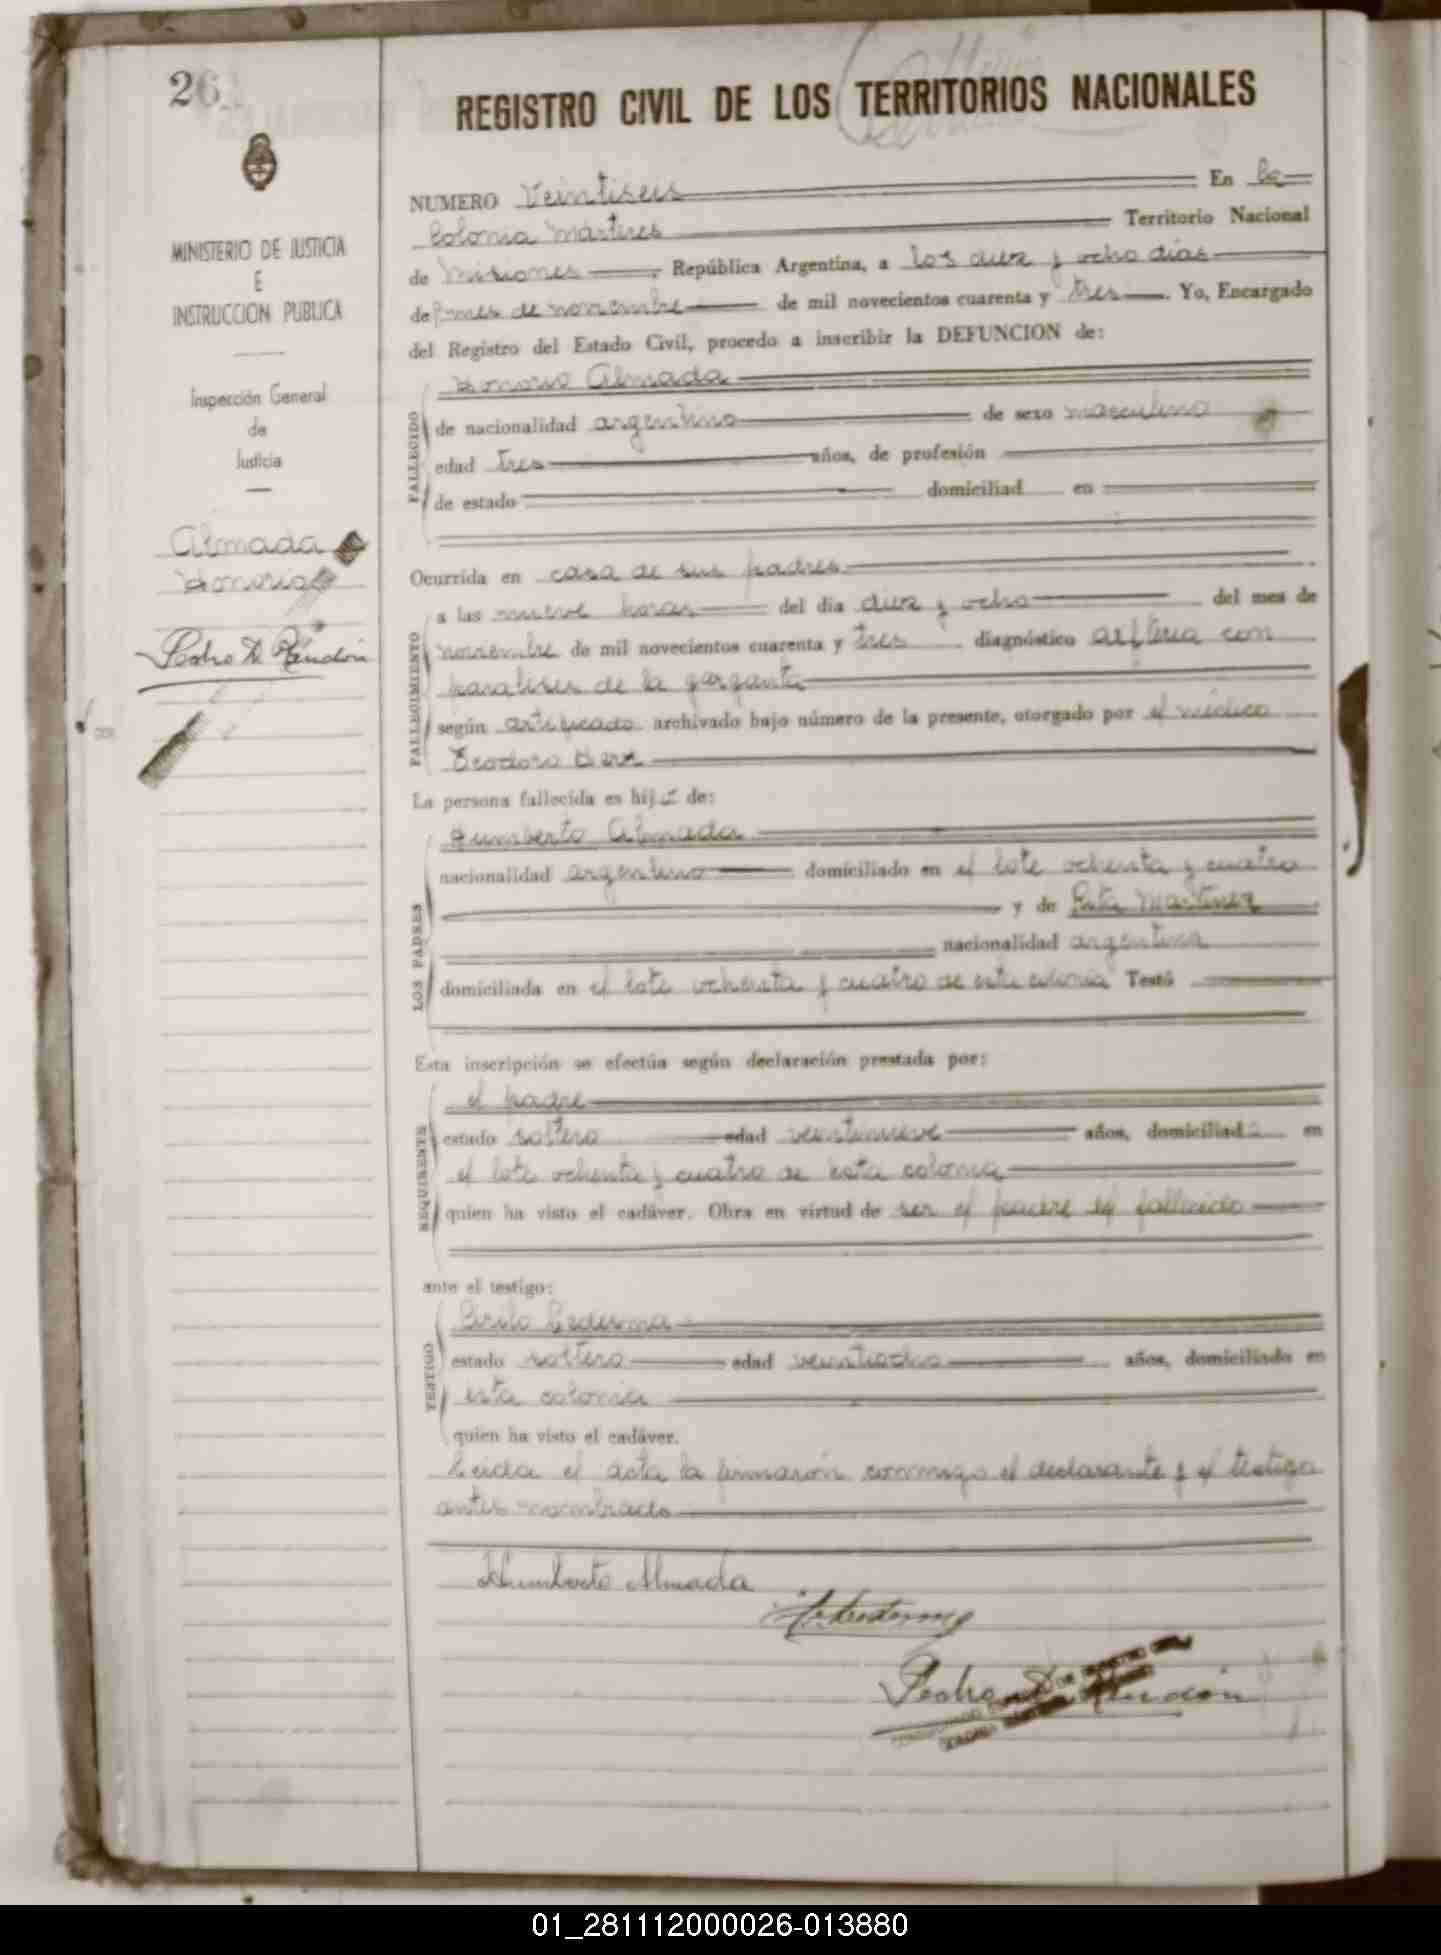 26
REGISTRO CIVIL DE LOS TERRITORIOS NACIONALES
MINISTERIO DE JUSTICIA
E
INSTRUCCION PUBLICA
Inspección General
de
Justicia
Almada
Honorio
Pedro D. Rendón
NUMERO Veintiseis En la
Colonia Mártires Territorio Nacional
de Misiones, República Argentina, a los diez y ocho días
del mes de noviembre de mil novecientos cuarenta y tres. Yo, Encargado
del Registro del Estado Civil, procedo a inscribir la DEFUNCION de:
FALLECIDO
Honorio Almada
de nacionalidad argentino de sexo masculino
edad tres años, de profesión
de estado domiciliad en
Ocurrida en casa de sus padres
FALLECIMIENTO
a las nueve horas del día diez y ocho del mes de
noviembre de mil novecientos cuarenta y tres diagnóstico difteria con
paralisis de la garganta
según certificado archivado bajo número de la presente, otorgado por el médico
Teodoro
La persona fallecida es hijo de:
LOS PADRES
Humberto Almada
nacionalidad argentino domiciliado en el lote ochenta y cuatro
y de Rita Martinez
nacionalidad argentina
domiciliada en el lote ochenta y cuatro de esta colonia Testó
Esta inscripción se efectúa según declaración prestada por:
REQUIRENTE
el padre
estado soltero edad veintinueve años, domiciliado en
el lote ochenta y cuatro de esta colonia
quien ha visto el cadáver. Obra en virtud de ser el padre del fallecido
ante el testigo:
TESTIGO
Cirilo Ledesma
estado soltero edad veintiocho años, domiciliado en
esta colonia
quien ha visto el cadáver.
Leida el acta la firmarón conmigo el declarante y el testigo
antes nombrado
Humberto Almada
Pedro D. Rendón
01_281112000026-013880